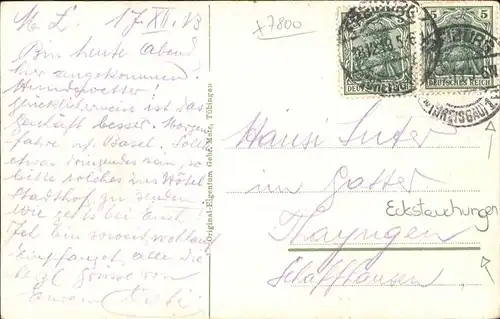 M. L. 17. XII. 13
+7800
Bin heute Abend
hier angekommen.
Hundewetter!
glücklicherweise ist das
Geschäft besser. Morgen
fahre n/ Basel. Sollte
etwas dringendes sein, so
bitte solches ins Hotel
Stadthof zu senden
Wie geht's bei Euch
Empfanget alle die
Grüsse von
Original-Eigentum Gebr. Metz, Tübingen
FREIBURG
(BREISGAU)
5
DEUTSCHES REICH
5
DEUTSCHES REICH
Hansi Suter
im Gatter
Thayngen
Schaffhausen
Eckstauchungen